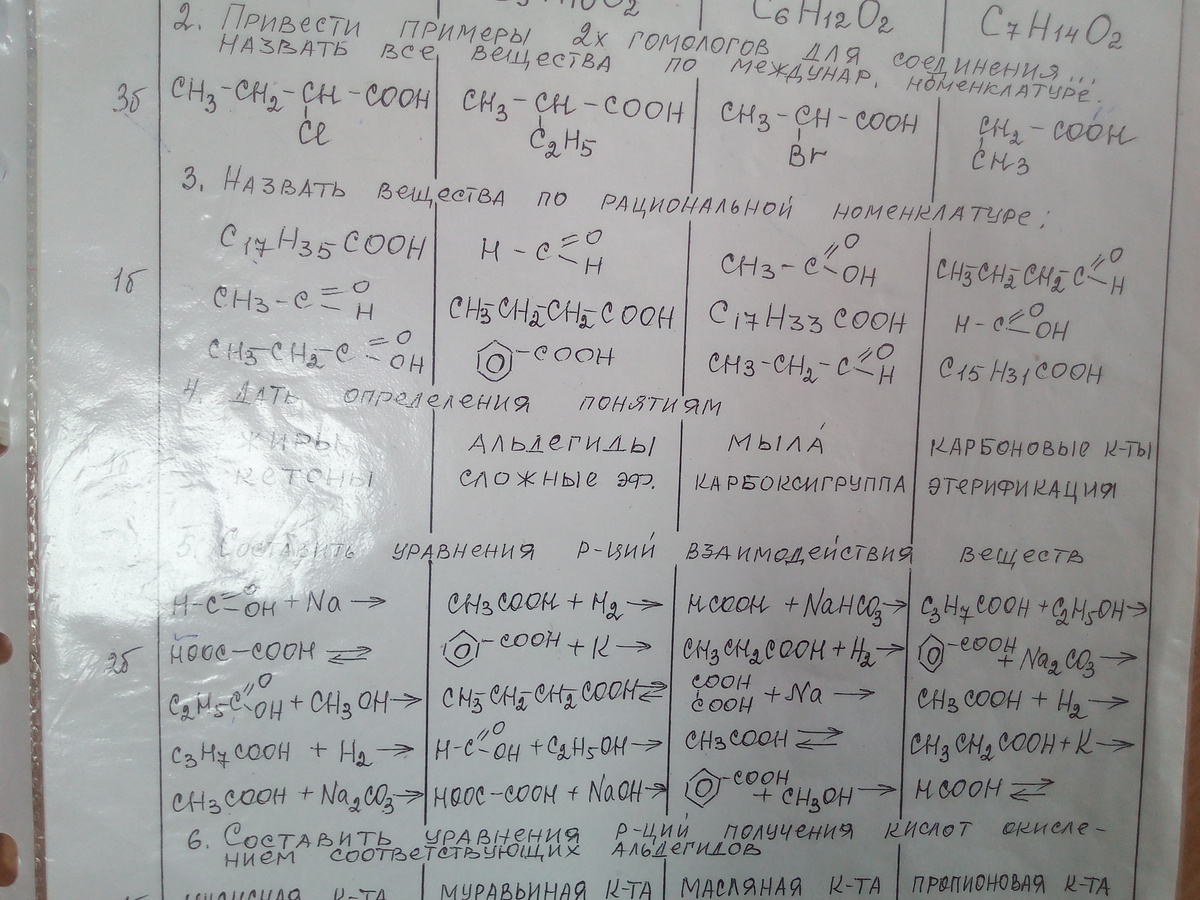 C6H12O2 C7H14O2
2. ПРИВЕСТИ ПРИМЕРЫ 2х ГОМОЛОГОВ ДЛЯ СОЕДИНЕНИЯ...
НАЗВАТЬ ВСЕ ВЕЩЕСТВА ПО МЕЖДУНАР. НОМЕНКЛАТУРЕ.
3б CH3-CH2-CH-COOH CH3-CH-COOH CH3-CH-COOH CH2-COOH
Cl C2H5 Br CH3
3. НАЗВАТЬ ВЕЩЕСТВА ПО РАЦИОНАЛЬНОЙ НОМЕНКЛАТУРЕ:
1б C17H35COOH H-C=O H CH3-C=O OH CH3CH2CH2C=O H
CH3-C=O H CH3CH2CH2COOH C17H33COOH H-C=O OH
CH3-CH2-C=O OH -COOH CH3-CH2-C=O H C15H31COOH
4. ДАТЬ ОПРЕДЕЛЕНИЯ ПОНЯТИЯМ
ЖИРЫ АЛЬДЕГИДЫ МЫЛА́ КАРБОНОВЫЕ К-ТЫ
КЕТОНЫ СЛОЖНЫЕ ЭФ. КАРБОКСИГРУППА ЭТЕРИФИКАЦИЯ
5. СОСТАВИТЬ УРАВНЕНИЯ Р-ЦИЙ ВЗАИМОДЕЙСТВИЯ ВЕЩЕСТВ
H-C=O OH + Na → CH3COOH + H2 → HCOOH + NaHCO3 → C3H7COOH + C2H5OH →
2б HOOC-COOH ⇌ -COOH + K → CH3CH2COOH + H2 → -COOH + Na2CO3 →
C2H5C=O OH + CH3OH → CH3CH2CH2COOH ⇌ COOH COOH + Na → CH3COOH + H2 →
C3H7COOH + H2 → H-C=O OH + C2H5OH → CH3COOH ⇌ CH3CH2COOH + K →
CH3COOH + Na2CO3 → HOOC-COOH + NaOH → -COOH + CH3OH → HCOOH ⇌
6. СОСТАВИТЬ УРАВНЕНИЯ Р-ЦИЙ ПОЛУЧЕНИЯ КИСЛОТ ОКИСЛЕ-
НИЕМ СООТВЕТСТВУЮЩИХ АЛЬДЕГИДОВ
К-ТА МУРАВЬИНАЯ К-ТА МАСЛЯНАЯ К-ТА ПРОПИОНОВАЯ К-ТА